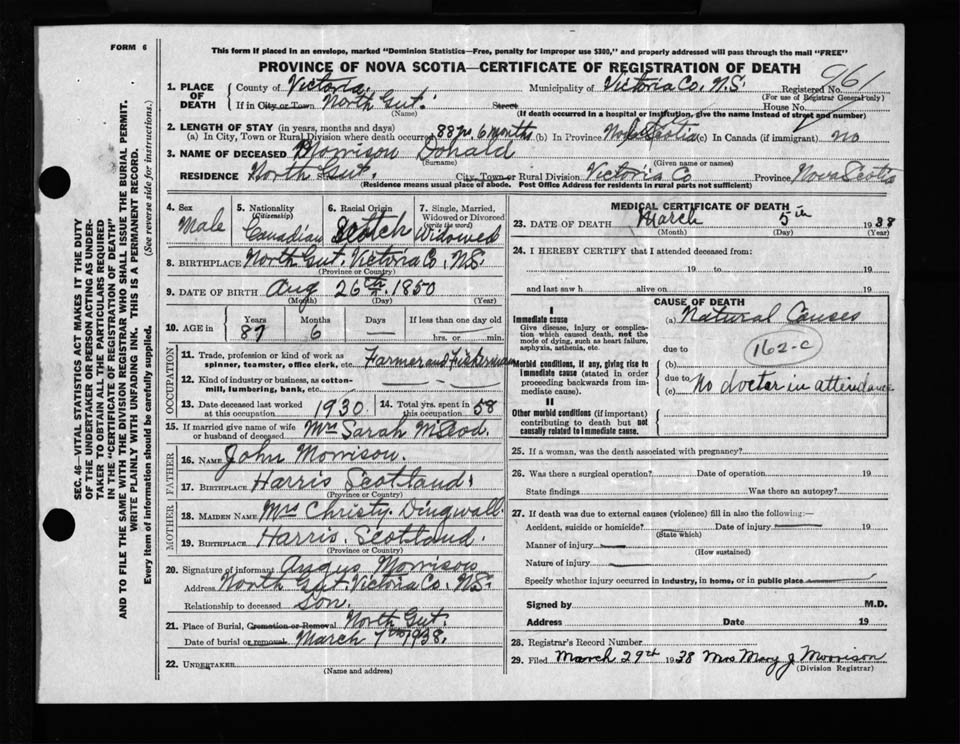 FORM 6
This form if placed in an envelope, marked "Dominion Statistics—Free, penalty for improper use $300," and properly addressed will pass through the mail "FREE"
PROVINCE OF NOVA SCOTIA—CERTIFICATE OF REGISTRATION OF DEATH
961
1. PLACE OF DEATH County of Victoria Municipality of Victoria Co, N.S. Registered No.
(For use of Registrar General only)
If in City or Town North Gut. Street House No.
(Name) (If death occurred in a hospital or institution, give the name instead of street and number)
2. LENGTH OF STAY (in years, months and days)
(a) In City, Town or Rural Division where death occurred 88 yrs 6 months (b) In Province Nova Scotia (c) In Canada (if immigrant) no
3. NAME OF DECEASED Morrison Donald
(Surname) (Given name or names)
RESIDENCE North Gut. Street City, Town or Rural Division Victoria Co Province Nova Scotia
(Residence means usual place of abode. Post Office Address for residents in rural parts not sufficient)
4. Sex Male
5. Nationality (Citizenship) Canadian
6. Racial Origin Scotch
7. Single, Married, Widowed or Divorced (write the word) Widowed
8. BIRTHPLACE North Gut. Victoria Co, N.S.
(Province or Country)
9. DATE OF BIRTH Aug 26th 1850
(Month) (Day) (Year)
10. AGE in Years 87 Months 6 Days — If less than one day old
hrs. or min.
OCCUPATION
11. Trade, profession or kind of work as spinner, teamster, office clerk, etc. Farmer and Fisherman
12. Kind of industry or business, as cotton-mill, lumbering, bank, etc.
13. Date deceased last worked at this occupation 1930
14. Total yrs. spent in this occupation 58
15. If married give name of wife or husband of deceased Mrs Sarah McLeod.
FATHER
16. NAME John Morrison.
17. BIRTHPLACE Harris Scotland.
(Province or Country)
MOTHER
18. MAIDEN NAME Mrs Christy Dingwall
19. BIRTHPLACE Harris. Scotland.
(Province or Country)
20. Signature of informant Angus Morrison
Address North Gut. Victoria Co, N.S.
Relationship to deceased Son.
21. Place of Burial, Cremation or Removal North Gut.
Date of burial or removal March 7th 1938.
22. UNDERTAKER
(Name and address)
MEDICAL CERTIFICATE OF DEATH
23. DATE OF DEATH March 5th 1938
(Month) (Day) (Year)
24. I HEREBY CERTIFY that I attended deceased from:
19 to 19
and last saw h alive on 19
CAUSE OF DEATH
I
Immediate cause
Give disease, injury or complication which caused death, not the mode of dying, such as heart failure, asphyxia, asthenia, etc.
(a) Natural Causes
due to
162-c
Morbid conditions, if any, giving rise to immediate cause (stated in order proceeding backwards from immediate cause).
(b)
due to
(c) No doctor in attendance
II
Other morbid conditions (if important) contributing to death but not causally related to immediate cause.
25. If a woman, was the death associated with pregnancy?
26. Was there a surgical operation? Date of operation 19
State findings Was there an autopsy?
27. If death was due to external causes (violence) fill in also the following:—
Accident, suicide or homicide? Date of injury 19
(State which)
Manner of injury
(How sustained)
Nature of injury
Specify whether injury occurred in industry, in home, or in public place
Signed by M.D.
Address Date 19
28. Registrar's Record Number
29. Filed March 29th 1938 Mrs Mary J Morrison
(Division Registrar)
SEC. 46—VITAL STATISTICS ACT MAKES IT THE DUTY
OF THE UNDERTAKER OR PERSON ACTING AS UNDER-
TAKER TO OBTAIN ALL THE PARTICULARS REQUIRED
IN THE "CERTIFICATE OF REGISTRATION OF DEATH"
AND TO FILE THE SAME WITH THE DIVISION REGISTRAR WHO SHALL ISSUE THE BURIAL PERMIT.
WRITE PLAINLY WITH UNFADING INK. THIS IS A PERMANENT RECORD.
Every item of information should be carefully supplied. (See reverse side for instructions.)